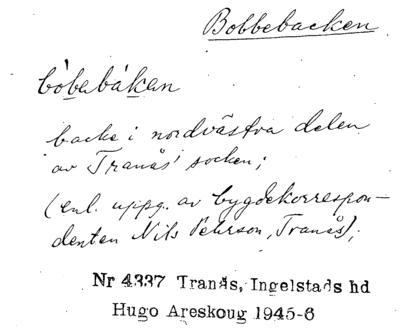 Bobbebacken
bòbabákan
backe i nordvästra delen
av Tranås' socken;
(enl. uppg. av bygdekorrespon-
denten Nils Pehrson, Tranås);
Nr 4337 Tranås, Ingelstads hd
Hugo Areskoug 1945-6